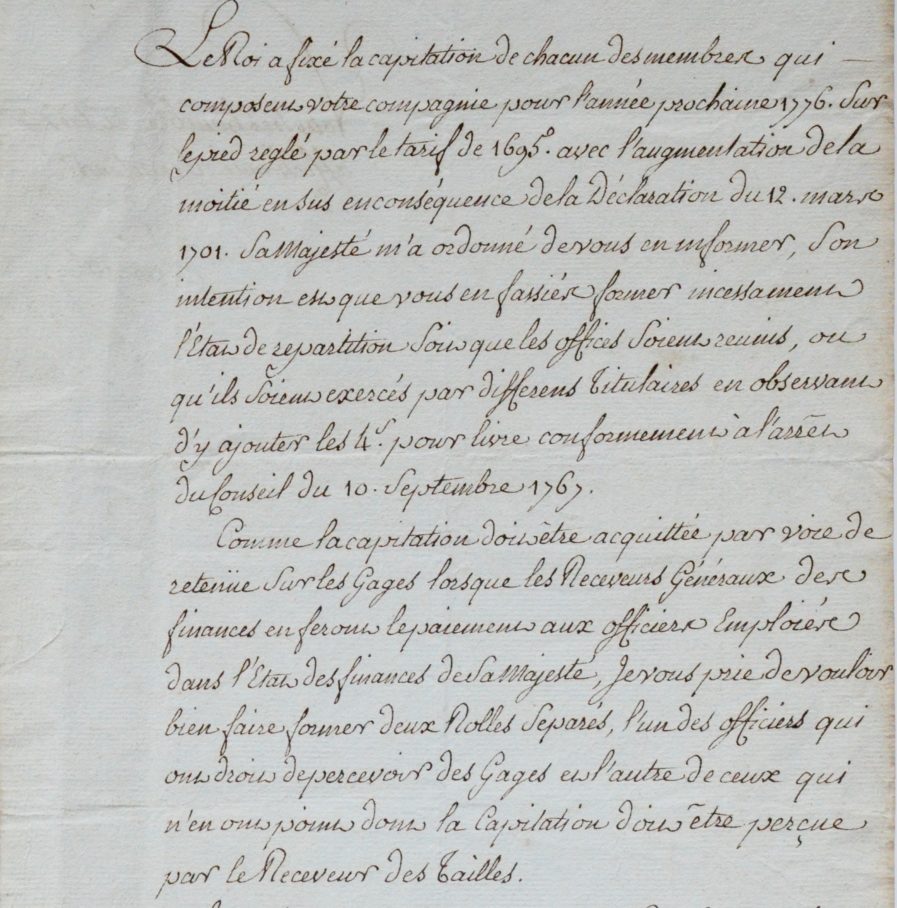 Le Roi a fixé la capitation de chacun des membres qui
composent votre compagnie pour l'année prochaine 1776. Sur
le pied reglé par le tarif de 1695. avec l'augmentation de la
moitié en sus en conséquence de la Déclaration du 12. mars
1701. Sa Majesté m'a ordonné de vous en informer, Son
intention est que vous en fassiés former incessament
l'Etat de repartition Soit que les offices Soient reunis, ou
qu'ils Soient exercés par differens Titulaires en observant
d'y ajouter les 4.s pour livre conformement à l'arrêt
du Conseil du 10. Septembre 1767.
Comme la capitation doit être acquittée par voie de
retenüe Sur les Gages lorsque les Receveurs Généraux des
finances en feront le paiement aux officiers Emploiés
dans l'Etat des finances de Sa Majesté, Je vous prie de vouloir
bien faire former deux Rolles Separés, l'un des officiers qui
ont droit de percevoir des Gages et l'autre de ceux qui
n'en ont point dont la Capitation doit être perçue
par le Receveur des Tailles.